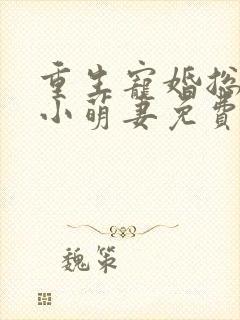 重生宠婚总
小萌妻免费
魏策